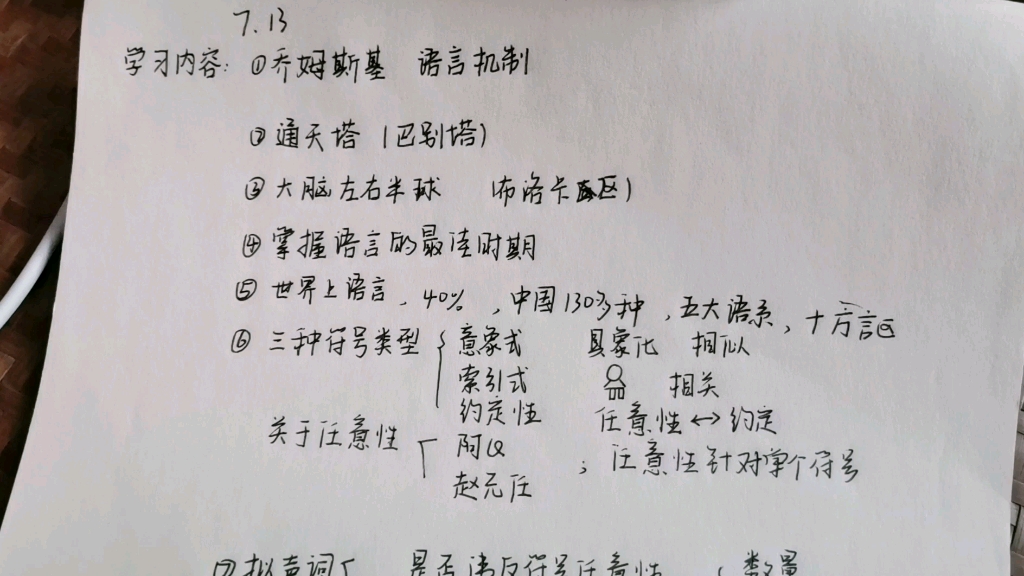 7.13
学习内容: ①乔姆斯基 语言机制
②通天塔 (巴别塔)
③大脑左右半球 (布洛卡区)
④掌握语言的最佳时期
⑤世界上语言, 40%, 中国130多种, 五大语系, 十方言区
⑥三种符号类型 意象式 具象化 相似
索引式 相关
约定性 任意性↔约定
关于任意性 阿Q ; 任意性针对单个符号
赵元任
⑦拟声词 是否违反符号任意性 数量